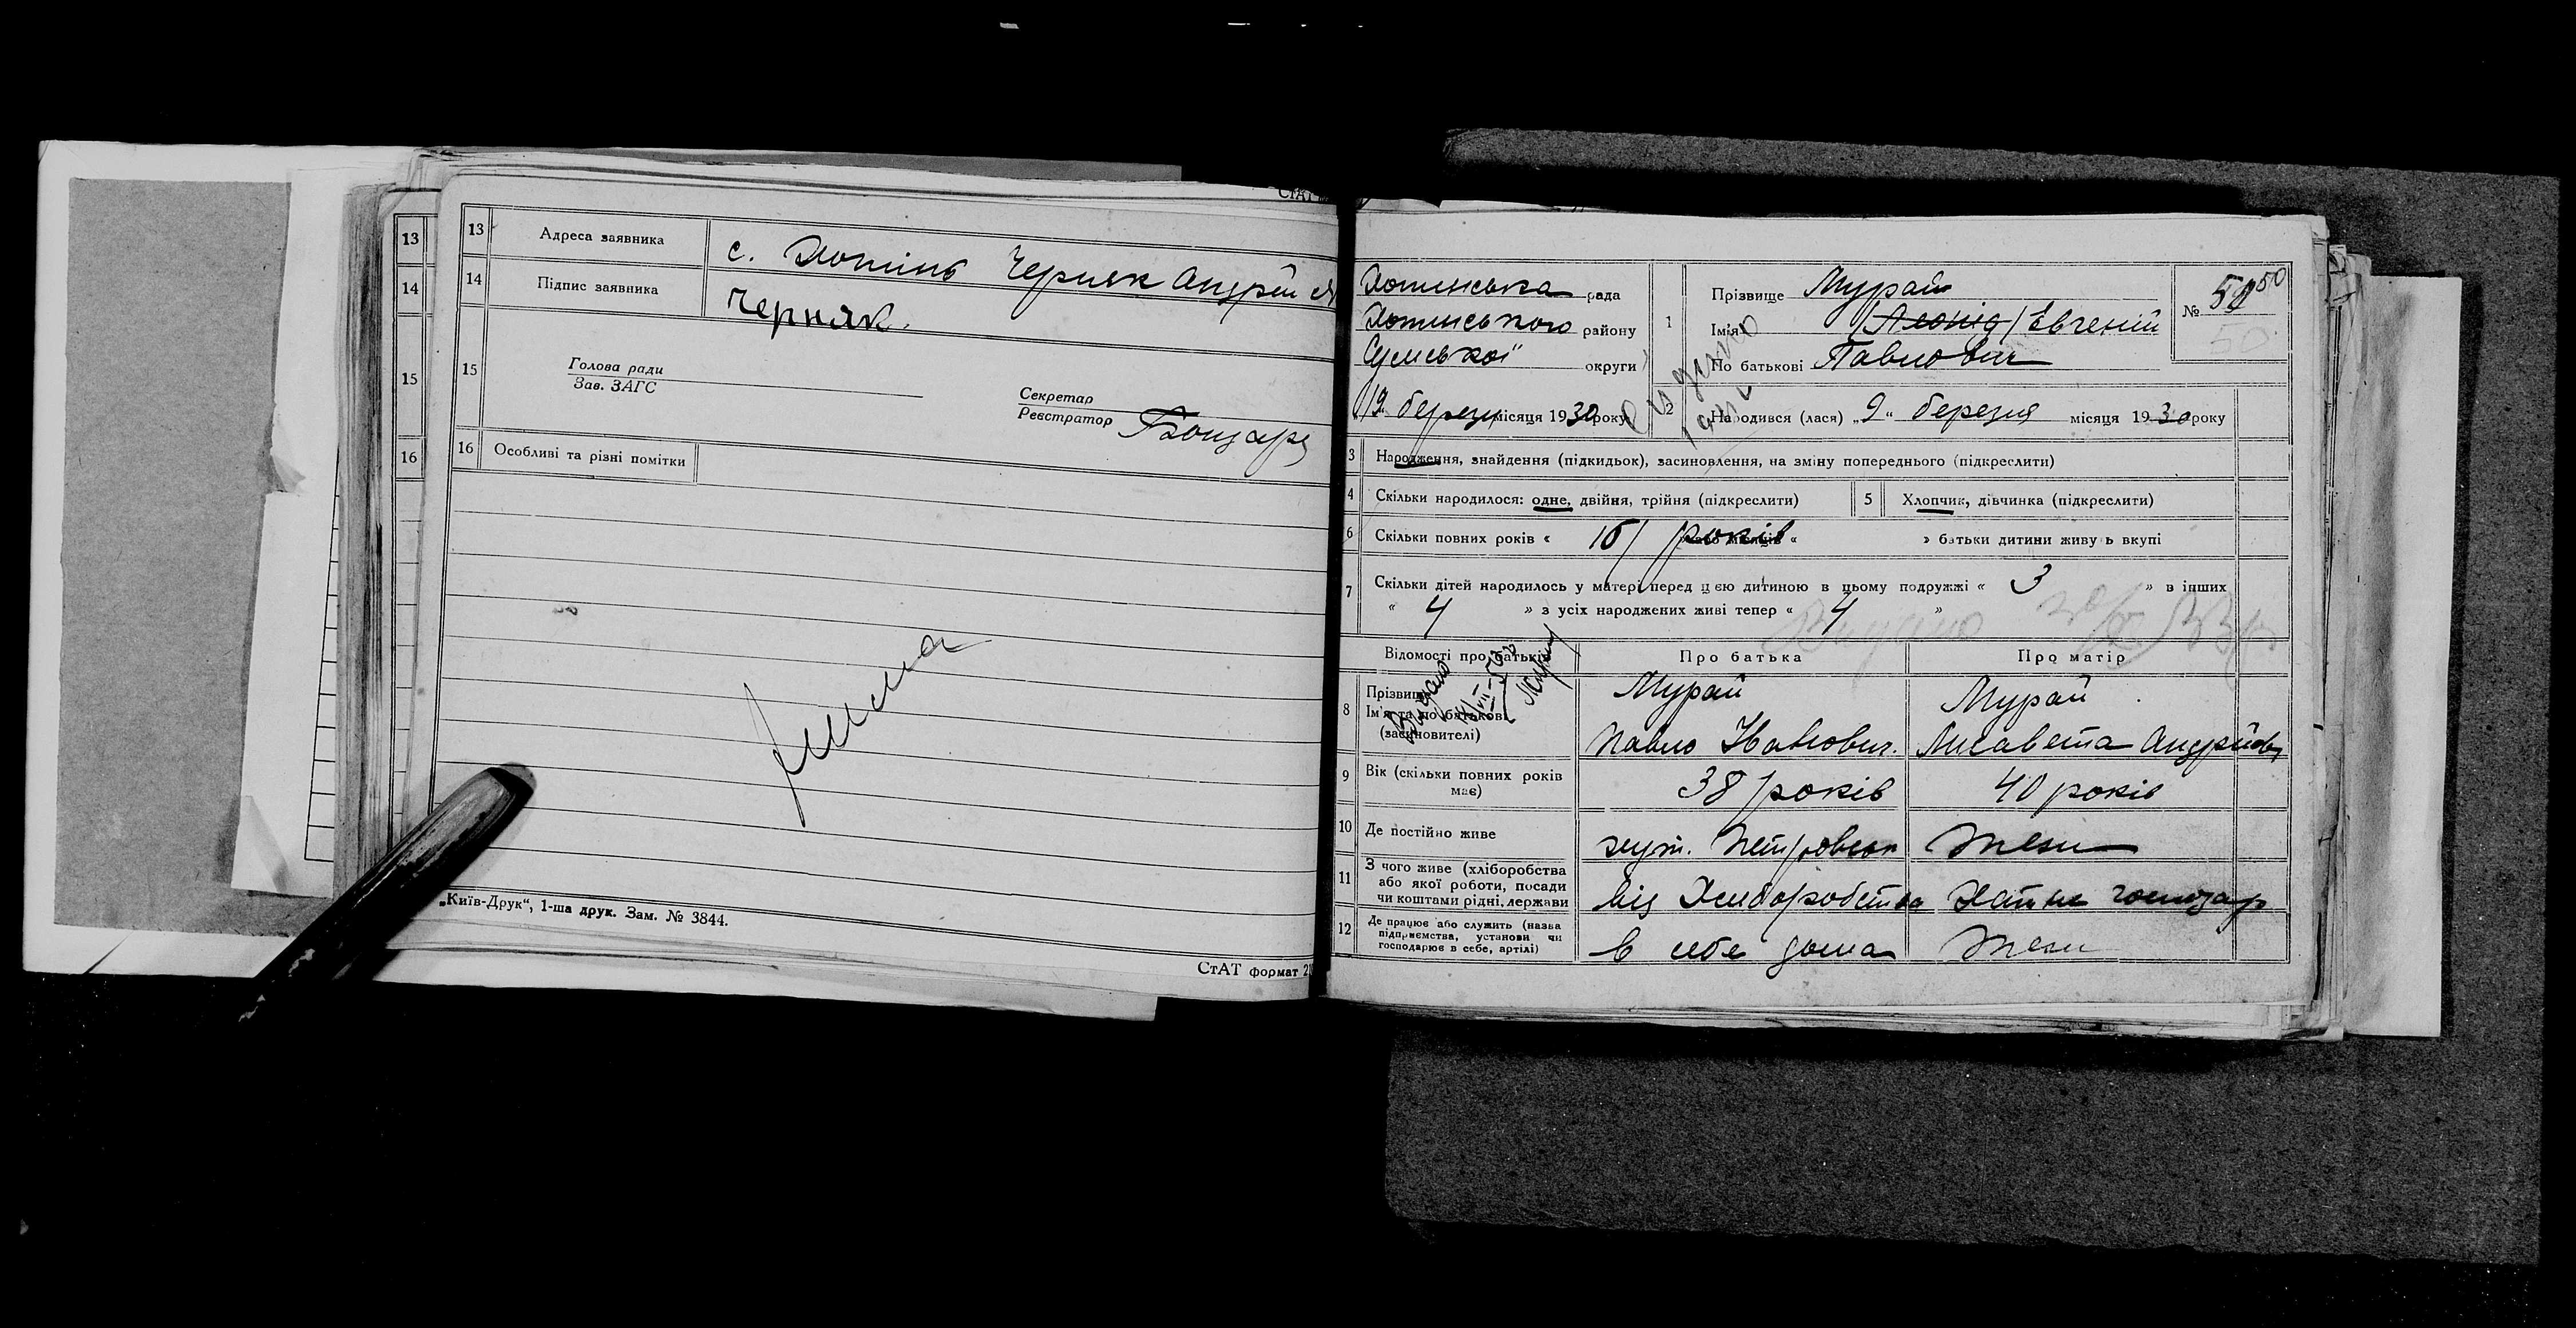 13
14
15
16
13 Адреса заявника с. Хотінь Черняк Андрій
14 Підпис заявника Черняк.
15 Голова ради
Зав. ЗАГС
Секретар
Реєстратор
16 Особливі та різні помітки
„Київ-Друк“, 1-ша друк. Зам. № 3844.
СтАТ формат
Хотинська рада
Хотинського району
Сумської округи
19 березн місяця 1930 року
1 Прізвище Мурай
Імя (Леонід) Евгеній
По батькові Павлович
№ 50 50
50
2 Народився (лася) „9“ березня місяця 1930 року
3 Народження, знайдення (підкидьок), засиновлення, на зміну попереднього (підкреслити)
4 Скільки народилося: одне, двійня, трійня (підкреслити) 5 Хлопчик, дівчинка (підкреслити)
6 Скільки повних років « років » батьки дитини живуть вкупі
7 Скільки дітей народилось у матері перед цією дитиною в цьому подружжі « 3 » в інших
« 4 » з усіх народжених живі тепер « 4 »
Видано
Відомості про батьків Про батька Про матір
Видано
8 Прізвище Мурай Мурай
Ім'я та по батькові
(засиновителі) Павло Іванович. Лисавета Андрійовн
9 Вік (скільки повних років
має) 38 років 40 років
10 Де постійно живе хут. Петровськ Теж
11 З чого живе (хліборобства
або якої роботи, посади
чи коштами рідні, держави від Хліборобства Хатне господар
12 Де працює або служить (назва
підприємства, установи чи
господарює в себе, артілі) в себе дома Теж